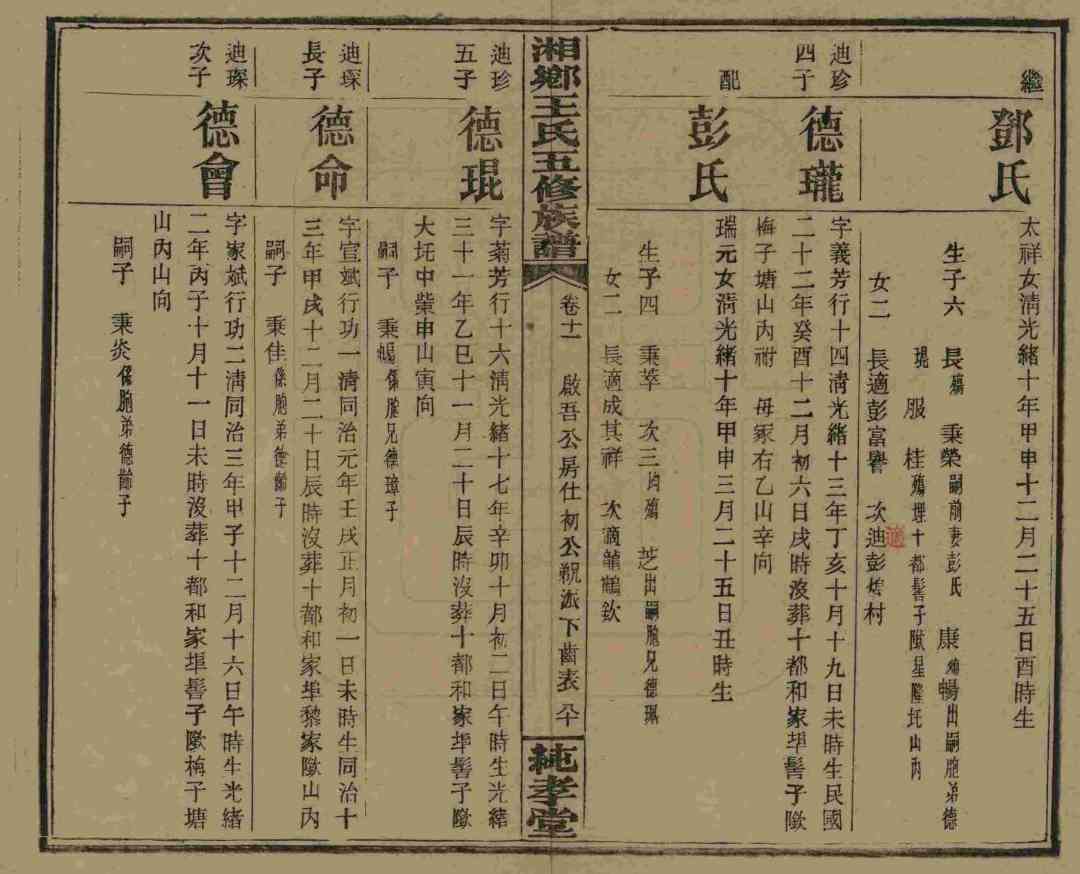 繼
鄧氏
太祥女淸光緒十年甲申十二月二十五日酉時生
生子六 長殤 秉榮嗣前妻彭氏 康殤暢出嗣胞弟德
琨 服 桂殤埋十都髻子隞星隆圫山內
女二 長適彭富譽 次迪彭 村
適
迪珍四子
德瓏
字義芳行十四淸光緒十三年丁亥十月十九日未時生民國
二十二年癸酉十二月初六日戌時沒葬十都和家埠髻子隞
梅子塘山內祔 母冢右乙山辛向
配
彭氏
瑞元女淸光緒十年甲申三月二十五日丑時生
生子四 秉萃 次三均殤 芝出嗣胞兄德
女二 長適成其祥 次適龍鶴欽
湘鄉王氏五修族譜
卷十一
啟吾公房仕初公 派下齒表
純孝堂
迪珍五子
德琨
字菊芳行十六淸光緒十七年辛卯十月初二日午時生光緒
三十一年乙巳十一月二十日辰時沒葬十都和家埠髻子隞
大圫中崙申山寅向
嗣子 秉暢係胞兄德瓏子
迪琛長子
德命
字宣斌行功一淸同治元年壬戌正月初一日未時生同治十
三年甲戌十二月二十日辰時沒葬十都和家埠黎家隞山內
嗣子 秉佳係胞弟德齡子
迪琛次子
德會
字家斌行功二淸同治三年甲子十二月十六日午時生光緒
二年丙子十月十一日未時沒葬十都和家埠髻子隞梅子塘
山內山向
嗣子 秉炎係胞弟德齡子